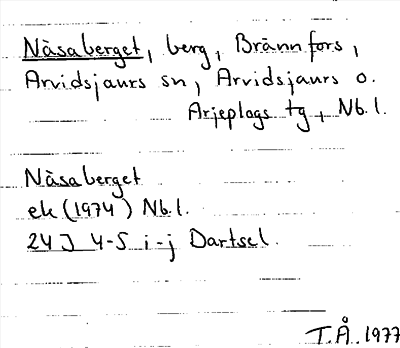 Näsaberget, berg, Brännfors,
Arvidsjaurs sn, Arvidsjaurs o.
Arjeplogs tg, Nb.l.
Näsaberget
ek (1974) Nb.l.
24J 4-5 i-j Dartsel.
T.Å. 1977